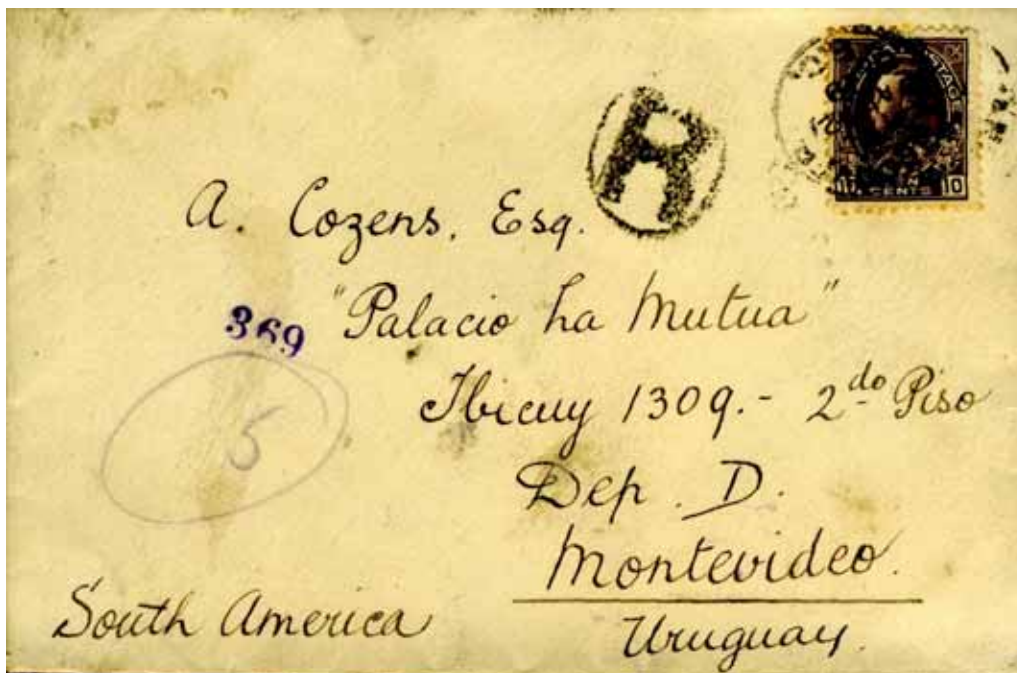 R
POSTAGE
10 CENTS 10
A. Cozens, Esq.
"Palacio La Mutua"
369
Ibicuy 1309.- 2do Piso
5
Dep. D.
Montevideo.
South America
Uruguay.